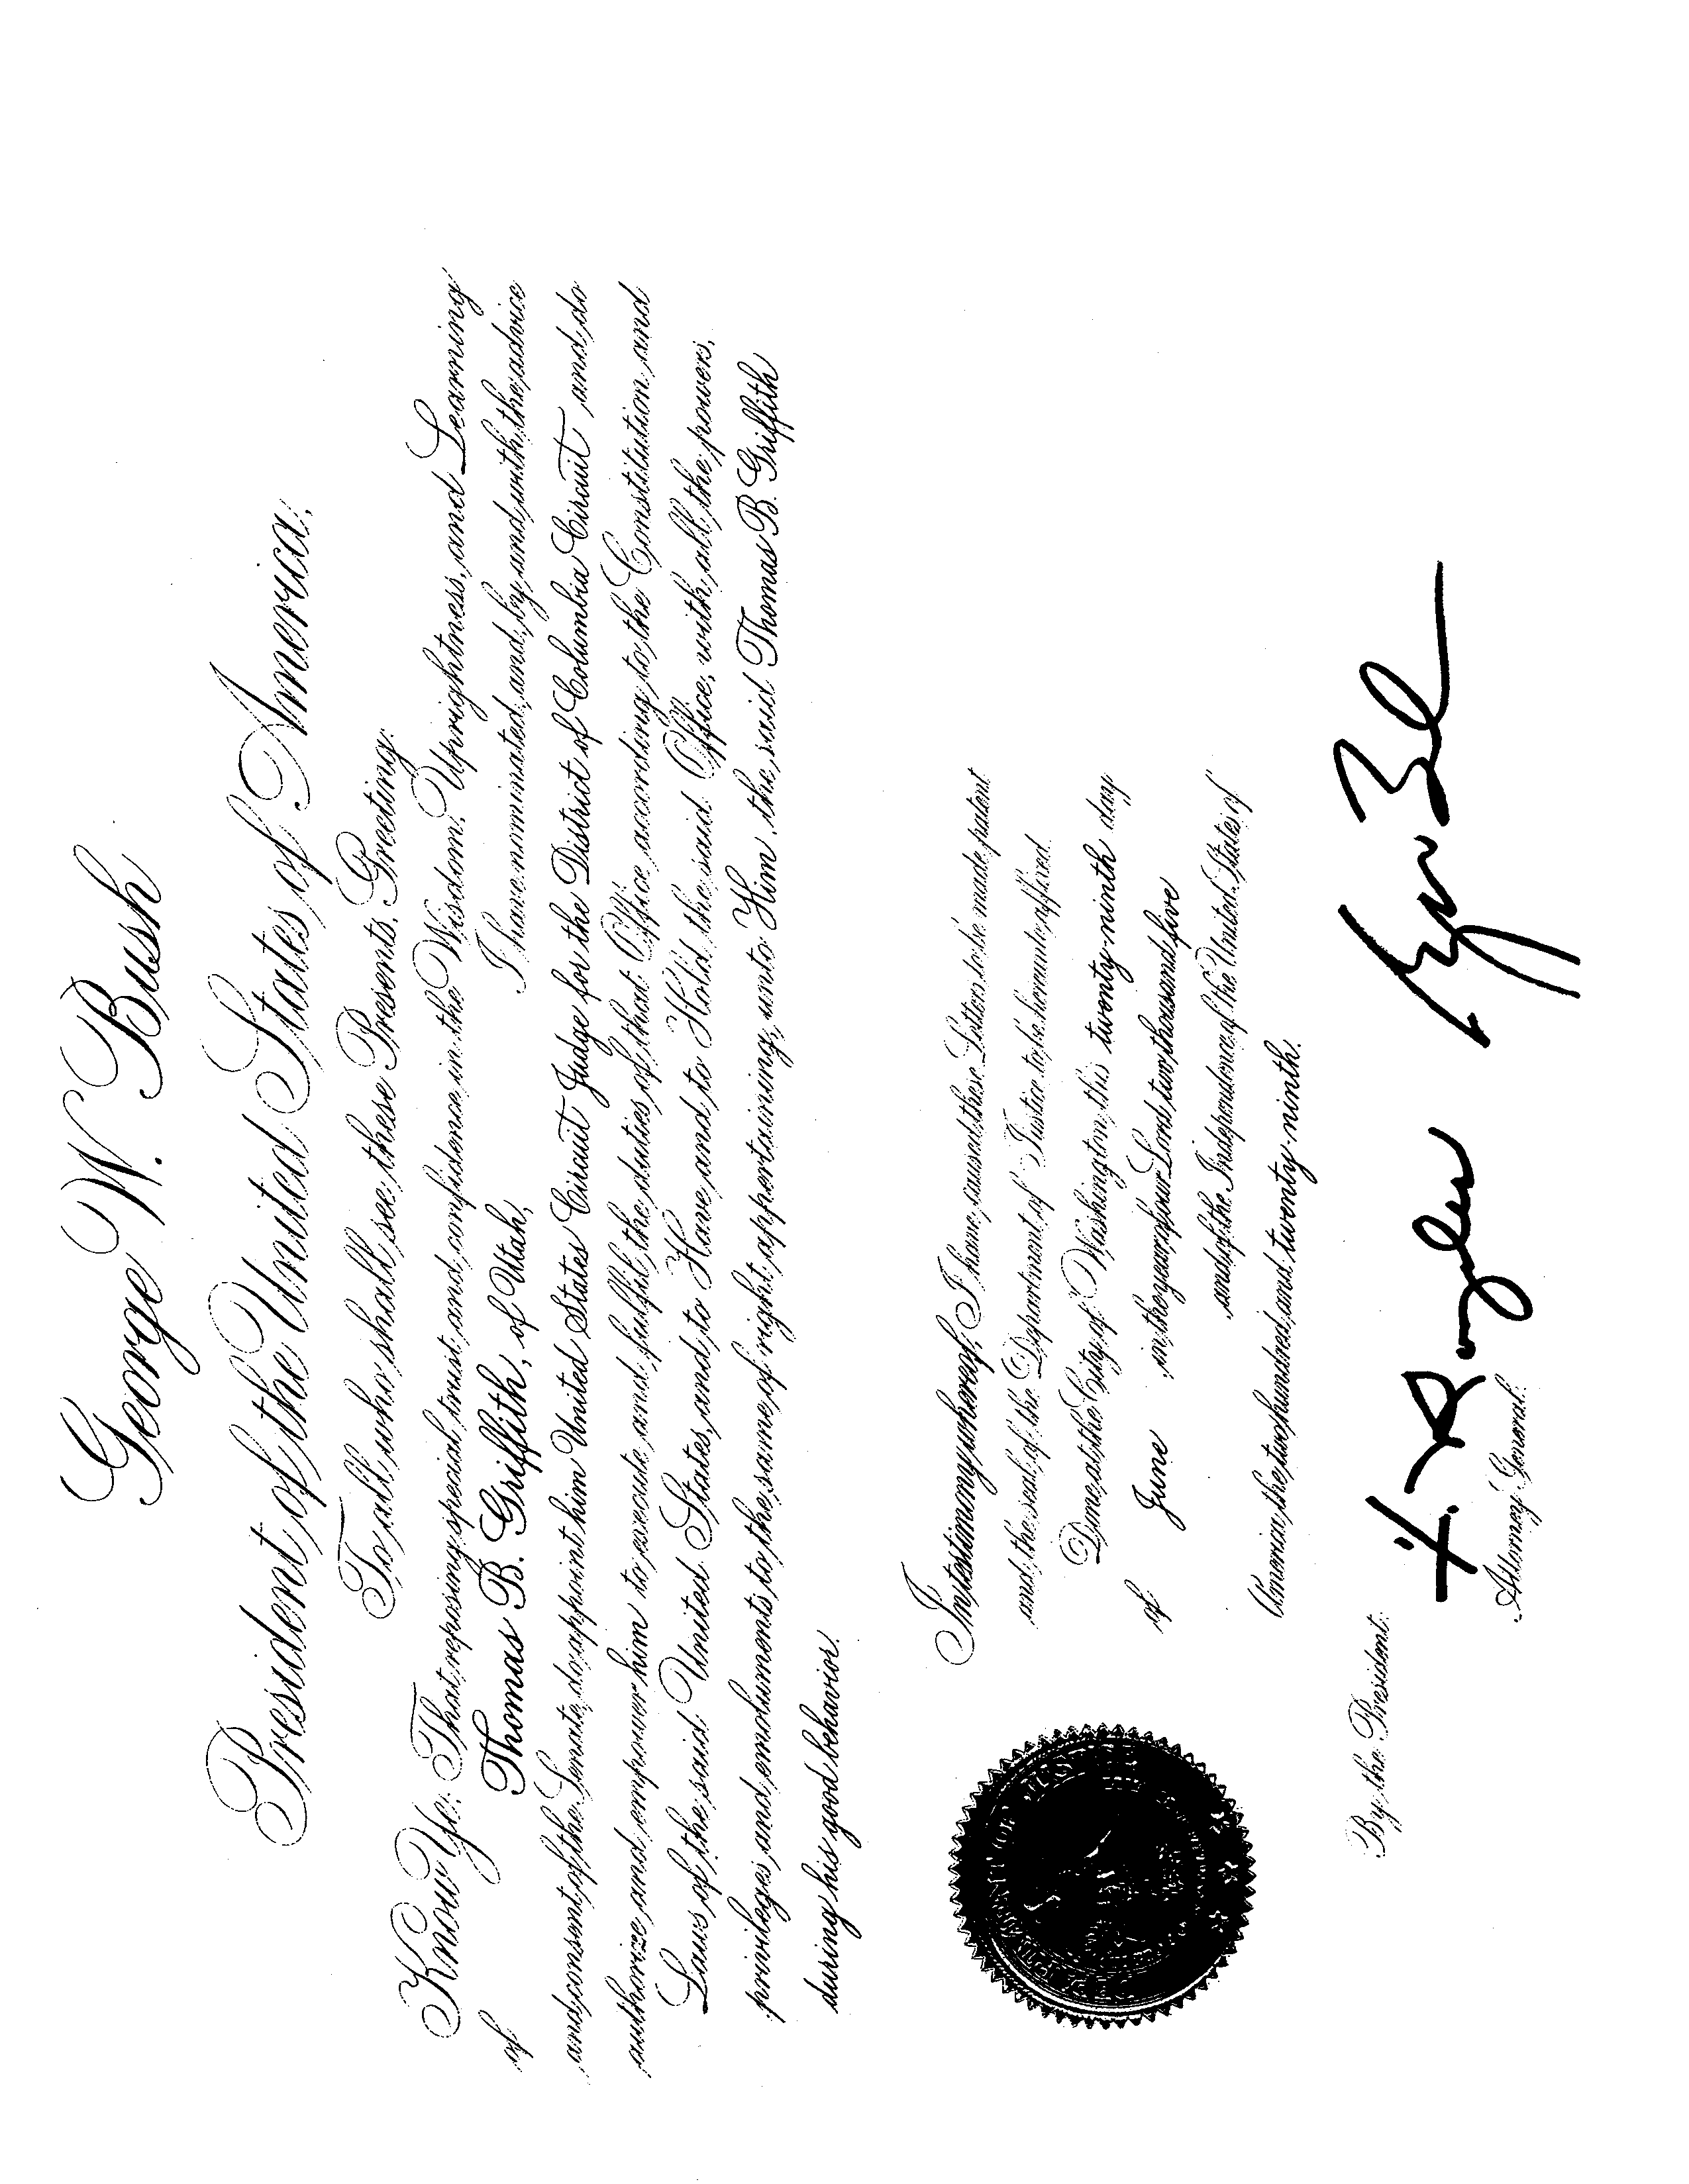 George W. Bush
President of the United States of America,
To all who shall see these Presents, Greeting:
Know Ye: That reposing special trust and confidence in the Wisdom, Uprightness, and Learning
of Thomas B. Griffith, of Utah, I have nominated, and, by and with the advice
and consent of the Senate, do appoint him United States Circuit Judge for the District of Columbia Circuit and do
authorize and empower him to execute and fulfil the duties of that Office according to the Constitution and
Laws of the said United States, and to Have and to Hold the said Office, with all the powers,
privileges and emoluments to the same of right appertaining, unto Him the said Thomas B. Griffith
during his good behavior.
In testimony whereof, I have caused these Letters to be made patent
and the seal of the Department of Justice to be hereunto affixed.
Done at the City of Washington, this twenty-ninth day
of June in the year of our Lord two thousand five
and of the Independence of the United States of
America the two hundred and twenty-ninth.
By the President:
Attorney General.